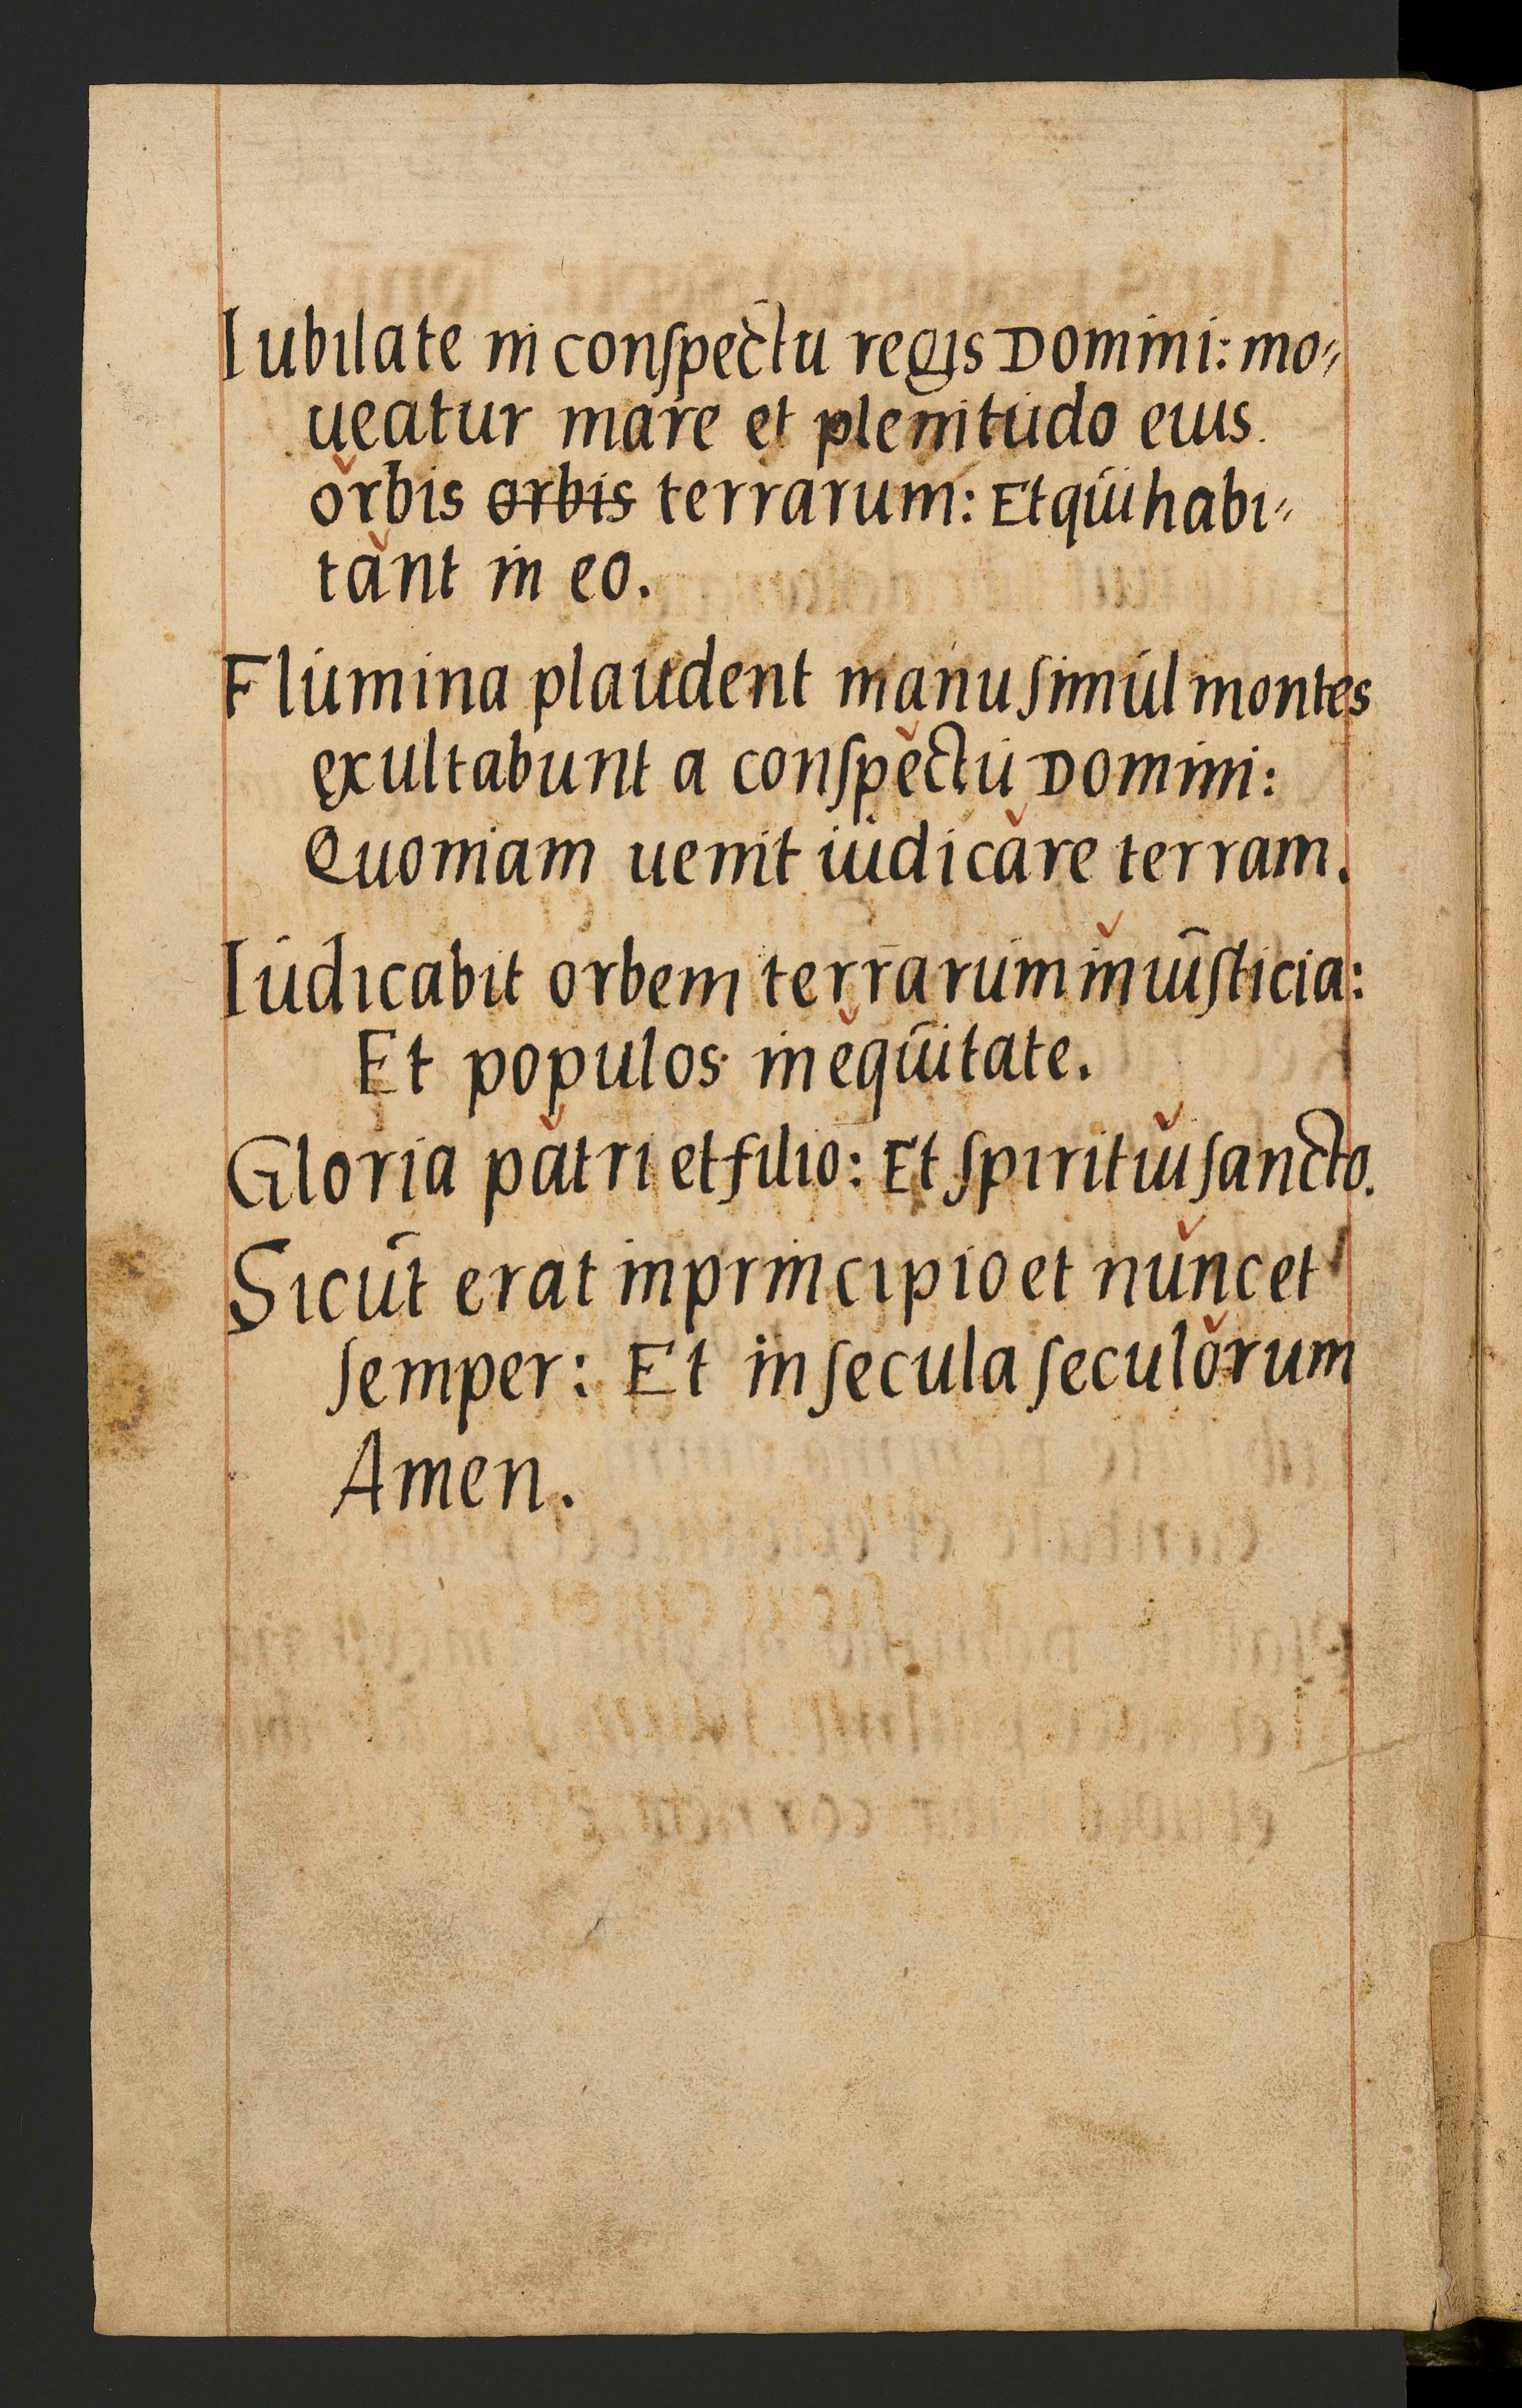 Iubilate in conſpectu regis Domini: mo⸗
ueatur mare et plenitudo eius.
orbis ~~orbis~~ terrarum: Et qui habi⸗
tant in eo.
Flumina plaudent manu ſimul montes
exultabunt a conſpectu Domini:
Quoniam uenit iudicare terram.
Iudicabit orbem terrarum in iuſticia:
Et populos in equitate.
Gloria patri et filio: Et ſpiritui ſancto.
Sicut erat in principio et nunc et
ſemper: Et in ſecula ſeculorum
Amen.